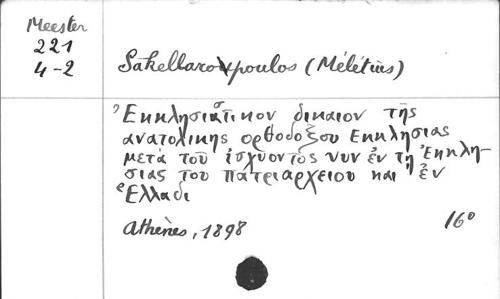 Meester
221
4-2
Sakellaropoulos (Mélétios)
Ἐκκλησιαστικον δικαιον τῆς
ανατολικης ορθοδοξου Εκκλησιας
μετά τοῦ ἰσχύοντος νυν ἐν τῇ Ἐκκλη-
σιας του πατριαρχειου και ἐν
Ἑλλαδι
Athènes, 1898
16°